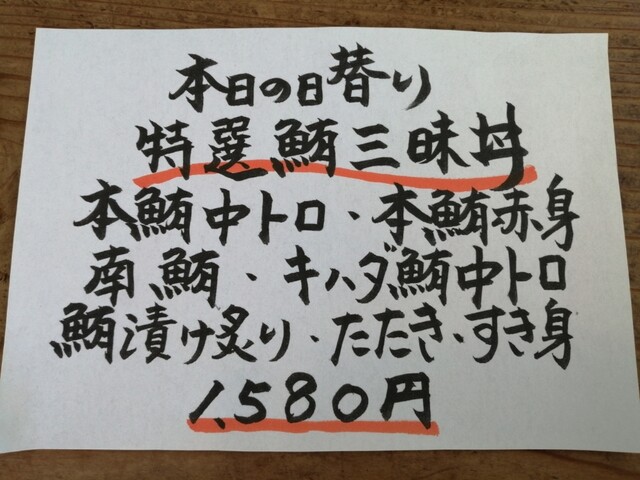 本日の日替り
特選鮪三昧丼
本鮪中トロ・本鮪赤身
南鮪・キハダ鮪中トロ
鮪漬け炙り・たたき・すき身
1,580円